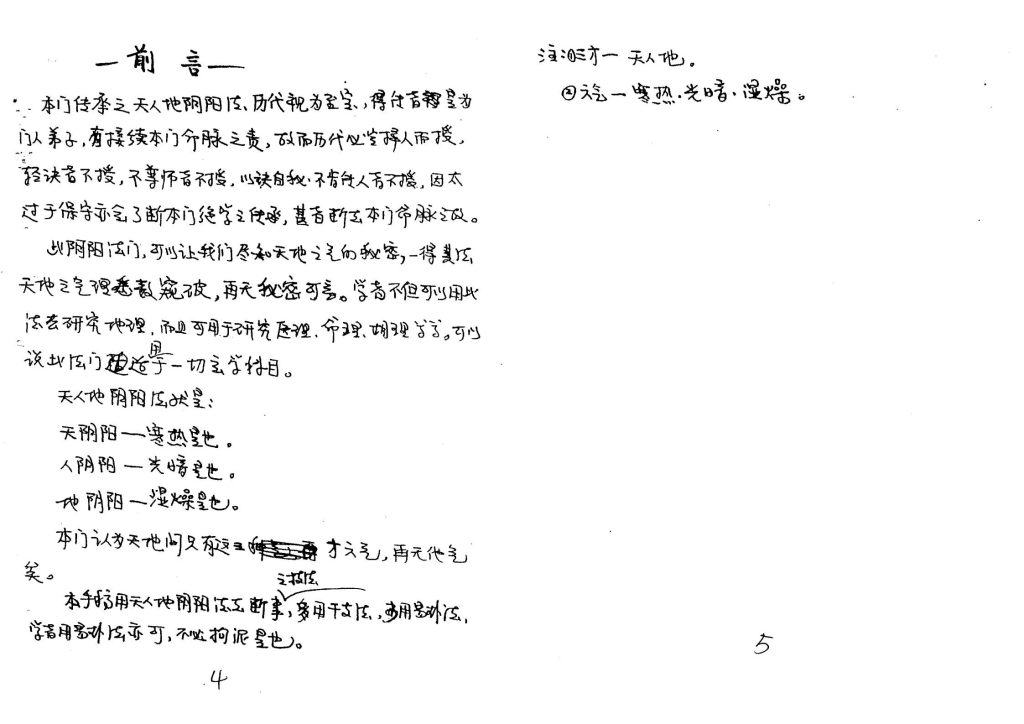 —前 言—
本门传承之天人地阴阳法、历代视为至宝、得付者都是为
门人弟子，有接续本门命脉之责，故而历代必坐择人而授，
轻诀者不授，不尊师者不授，以诀自秘·不肯付人者不授，因太
过于保守亦会了断本门绝学之传承，甚者断去本门命脉之故。
此阴阳法门，可以让我们尽知天地之气的秘密，一得其法
天地之气理悉数窥破，再无秘密可言。学者不但可以用此
法去研究地理，而且可用于研究医理、命理、相理等等。可以
说此法门适用于一切玄学科目。
天人地阴阳法就是：
天阴阳—寒热是也。
人阴阳—光暗是也。
地阴阳—湿燥是也。
本门认为天地间只有这三才六气，再无他气
矣。
本手稿用天人地阴阳法去断事之技法，多用干支法，少用易卦法，
学者用易卦法亦可，不必拘泥是也。
4
注：①三才— 天人地。
②六气—寒热·光暗·湿燥。
5